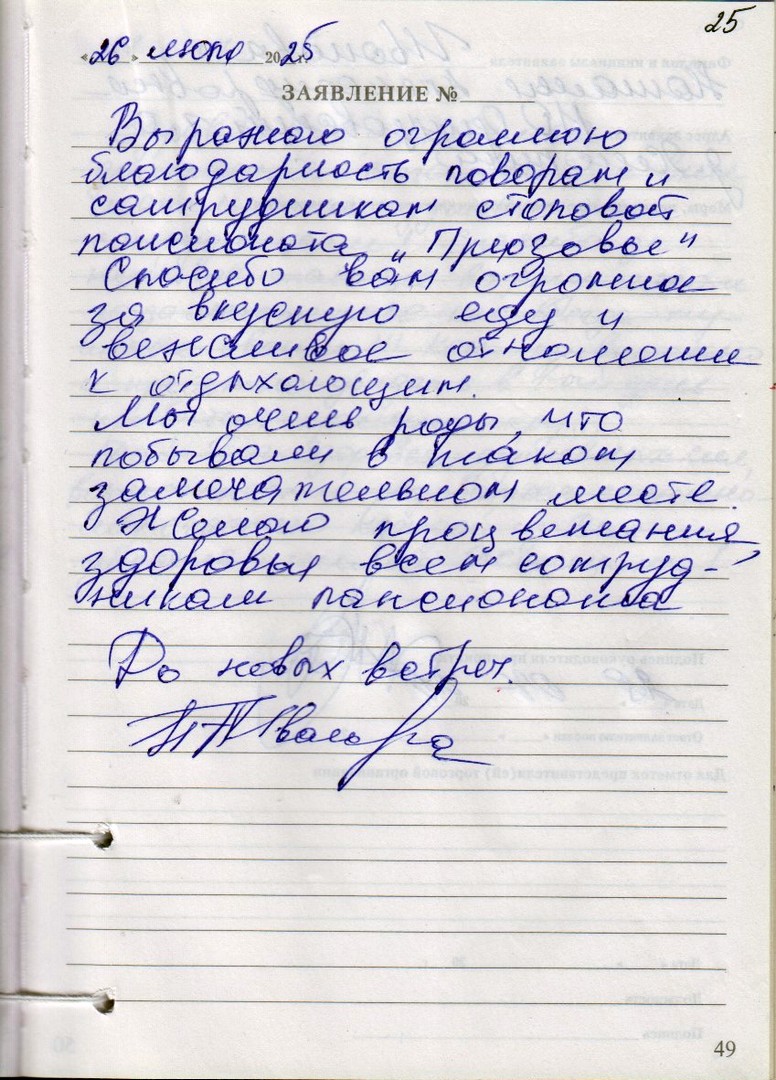 25
«26» июля 2025 г.
ЗАЯВЛЕНИЕ №
Выражаю огромную
благодарность поварам и
сотрудникам столовой
пансионата "Приазовье"
Спасибо вам огромное
за вкусную еду и
вежливое отношение
к отдыхающим.
Мы очень рады, что
побывали в таком
замечательном месте.
Желаю процветания,
здоровья всем сотруд-
никам пансионата
До новых встреч.
49